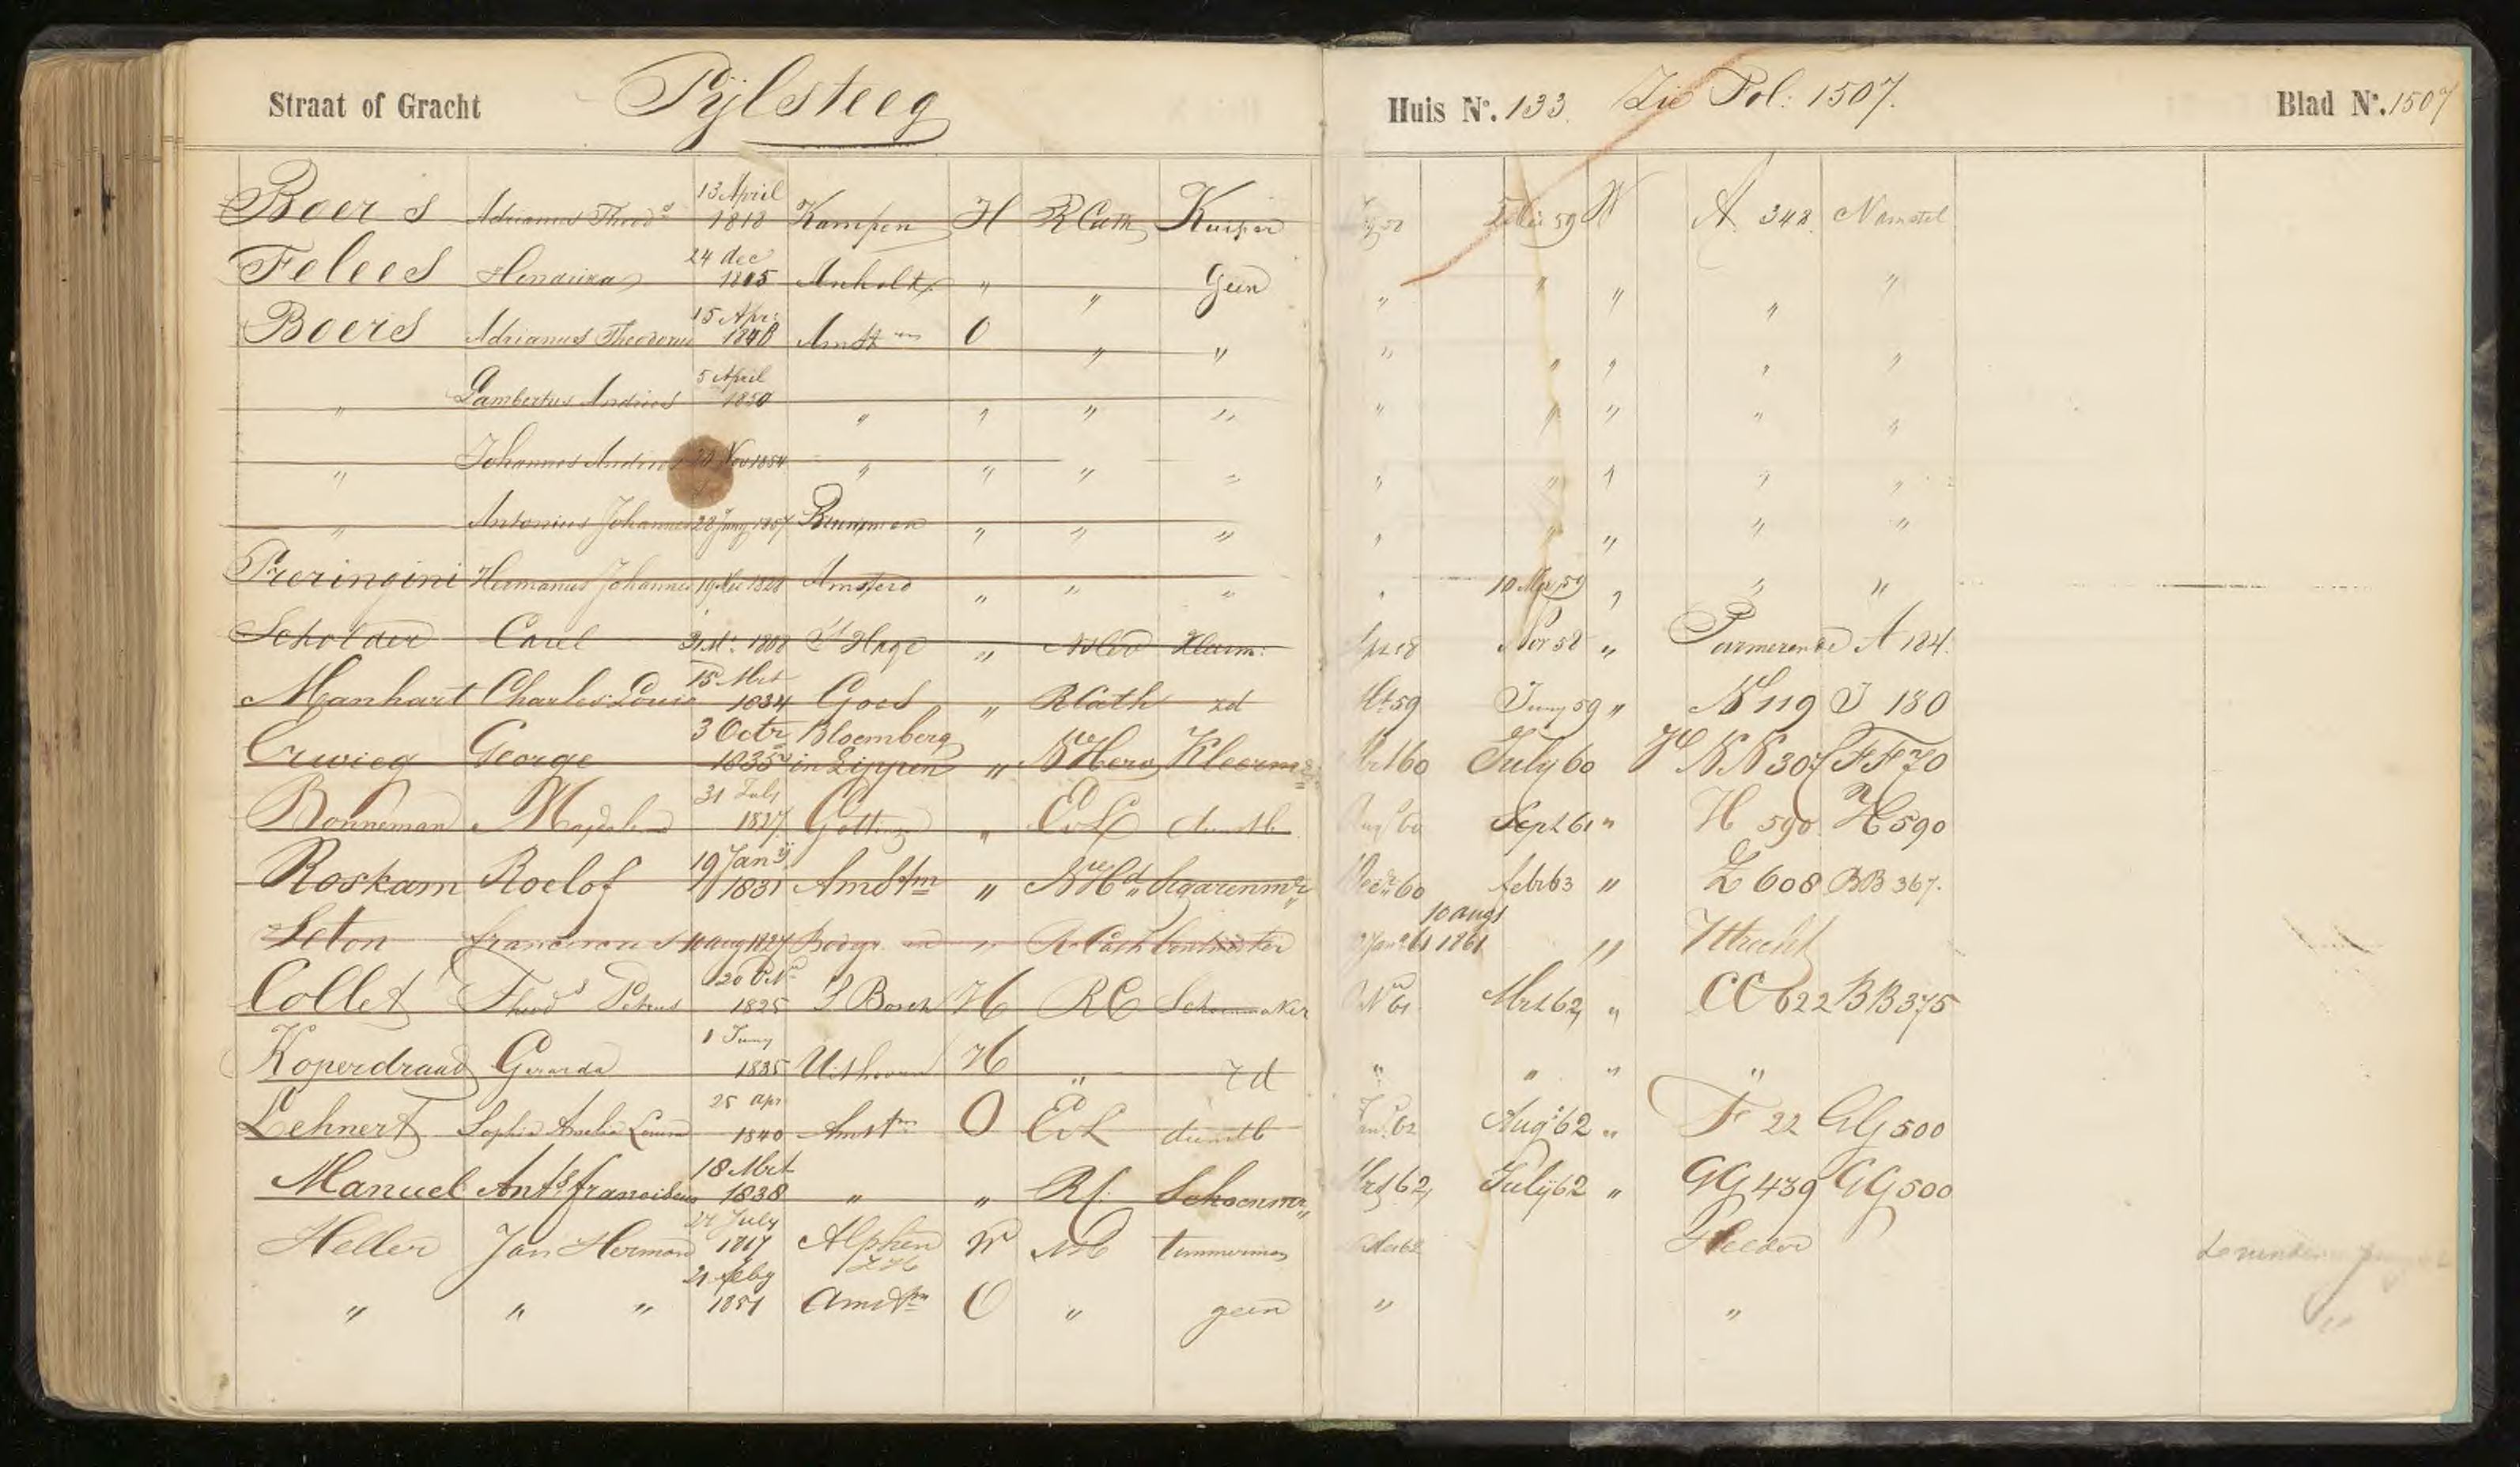 Straat of Gracht Pijlsteeg Huis No. 133. Zie Fol: 1507. Blad No. 1507
Boers Adrianus Theods 13 April 1818 Kampen H R Cath Kuiper 59 W A 348 N Amstel
Felees Hendrika 24 dec 1815 Anholt " " Geen " " " " "
Boers Adrianus Theodorus 15 Apr: 1848 Amstm O " " " " " " "
" Lambertus Andries 5 April 1850 " " " " " " " " "
" Johannes Andries Nov 1854 " " " " " " " " "
" Antonius Johannes 28 1857 Brummen " " " " " " " "
Preringini Hermanus Johannes 19 1828 Amsterd " " " " 10 59 " " "
Scholder Carel 1808 S Hage " Kleerm: Nov 58 " Purmerende A 184.
Manhart Charles Louis 15 Mrt 1834 Goes " R Cath zd 59 Juny 59 " 119 J 180
Crwieg George 3 Octr 1835 Bloemberg in Lippen " N Herv Kleerm Mrt 60 July 60 " NN 307 FF 70
Bonneman Magdalena 31 July 1827 Gottingen " Ev L dienstb Aug 60 Sept 61 " H 590 H 590
Roskam Roelof 19 Jany 1831 Amstm " N Hd Segarenmr Decr 60 febr 63 " Z 608 BB 367.
Leton franciscus 11 aug 1827 " R Cath Jan 61 10 augs 1861 " Uttrecht
Collet Theods Petrus 20 Octr 1825 S Bosch H RC Schoenmaker 61 Mrt 62 " CC 622 BB 375
Koperdraad Gerarda 1 Juny 1835 Uithoorn H " zd " " " "
Lehnert Sophia Amelia Louisa 25 apr 1840 Amstm O Ev L dienstb 62 Aug 62 " F 22 GG 500
Manuel Ants franciscus 18 Mrt 1838 " " RC Schoenmr Mrt 62 July 62 " GG 439 GG 500
Heller Jan Herman July 1817 Alphen ZH W NH timmerman 62 Helder
" " " 21 feby 1851 Amstm O " geen " "